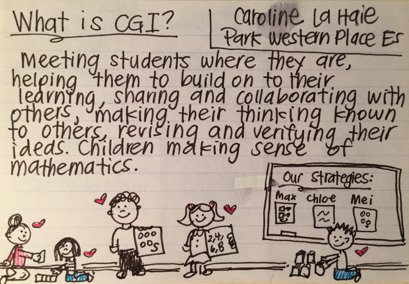 What is CGI?
Caroline La Haie
Park Western Place Es
Meeting students where they are,
helping them to build on to their
learning, sharing and collaborating with
others, making their thinking known
to others, revising and verifying their
ideas. Children making sense of
mathematics.
Our Strategies:
Max Chloe Mei
2,4,
6,8